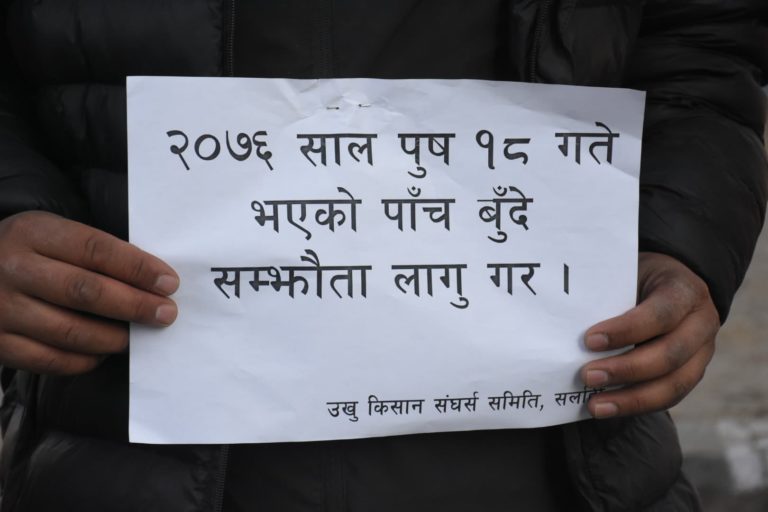 २०७६ साल पुष १८ गते
भएको पाँच बुँदे
सम्झौता लागु गर ।
उखु किसान संघर्स समिति,